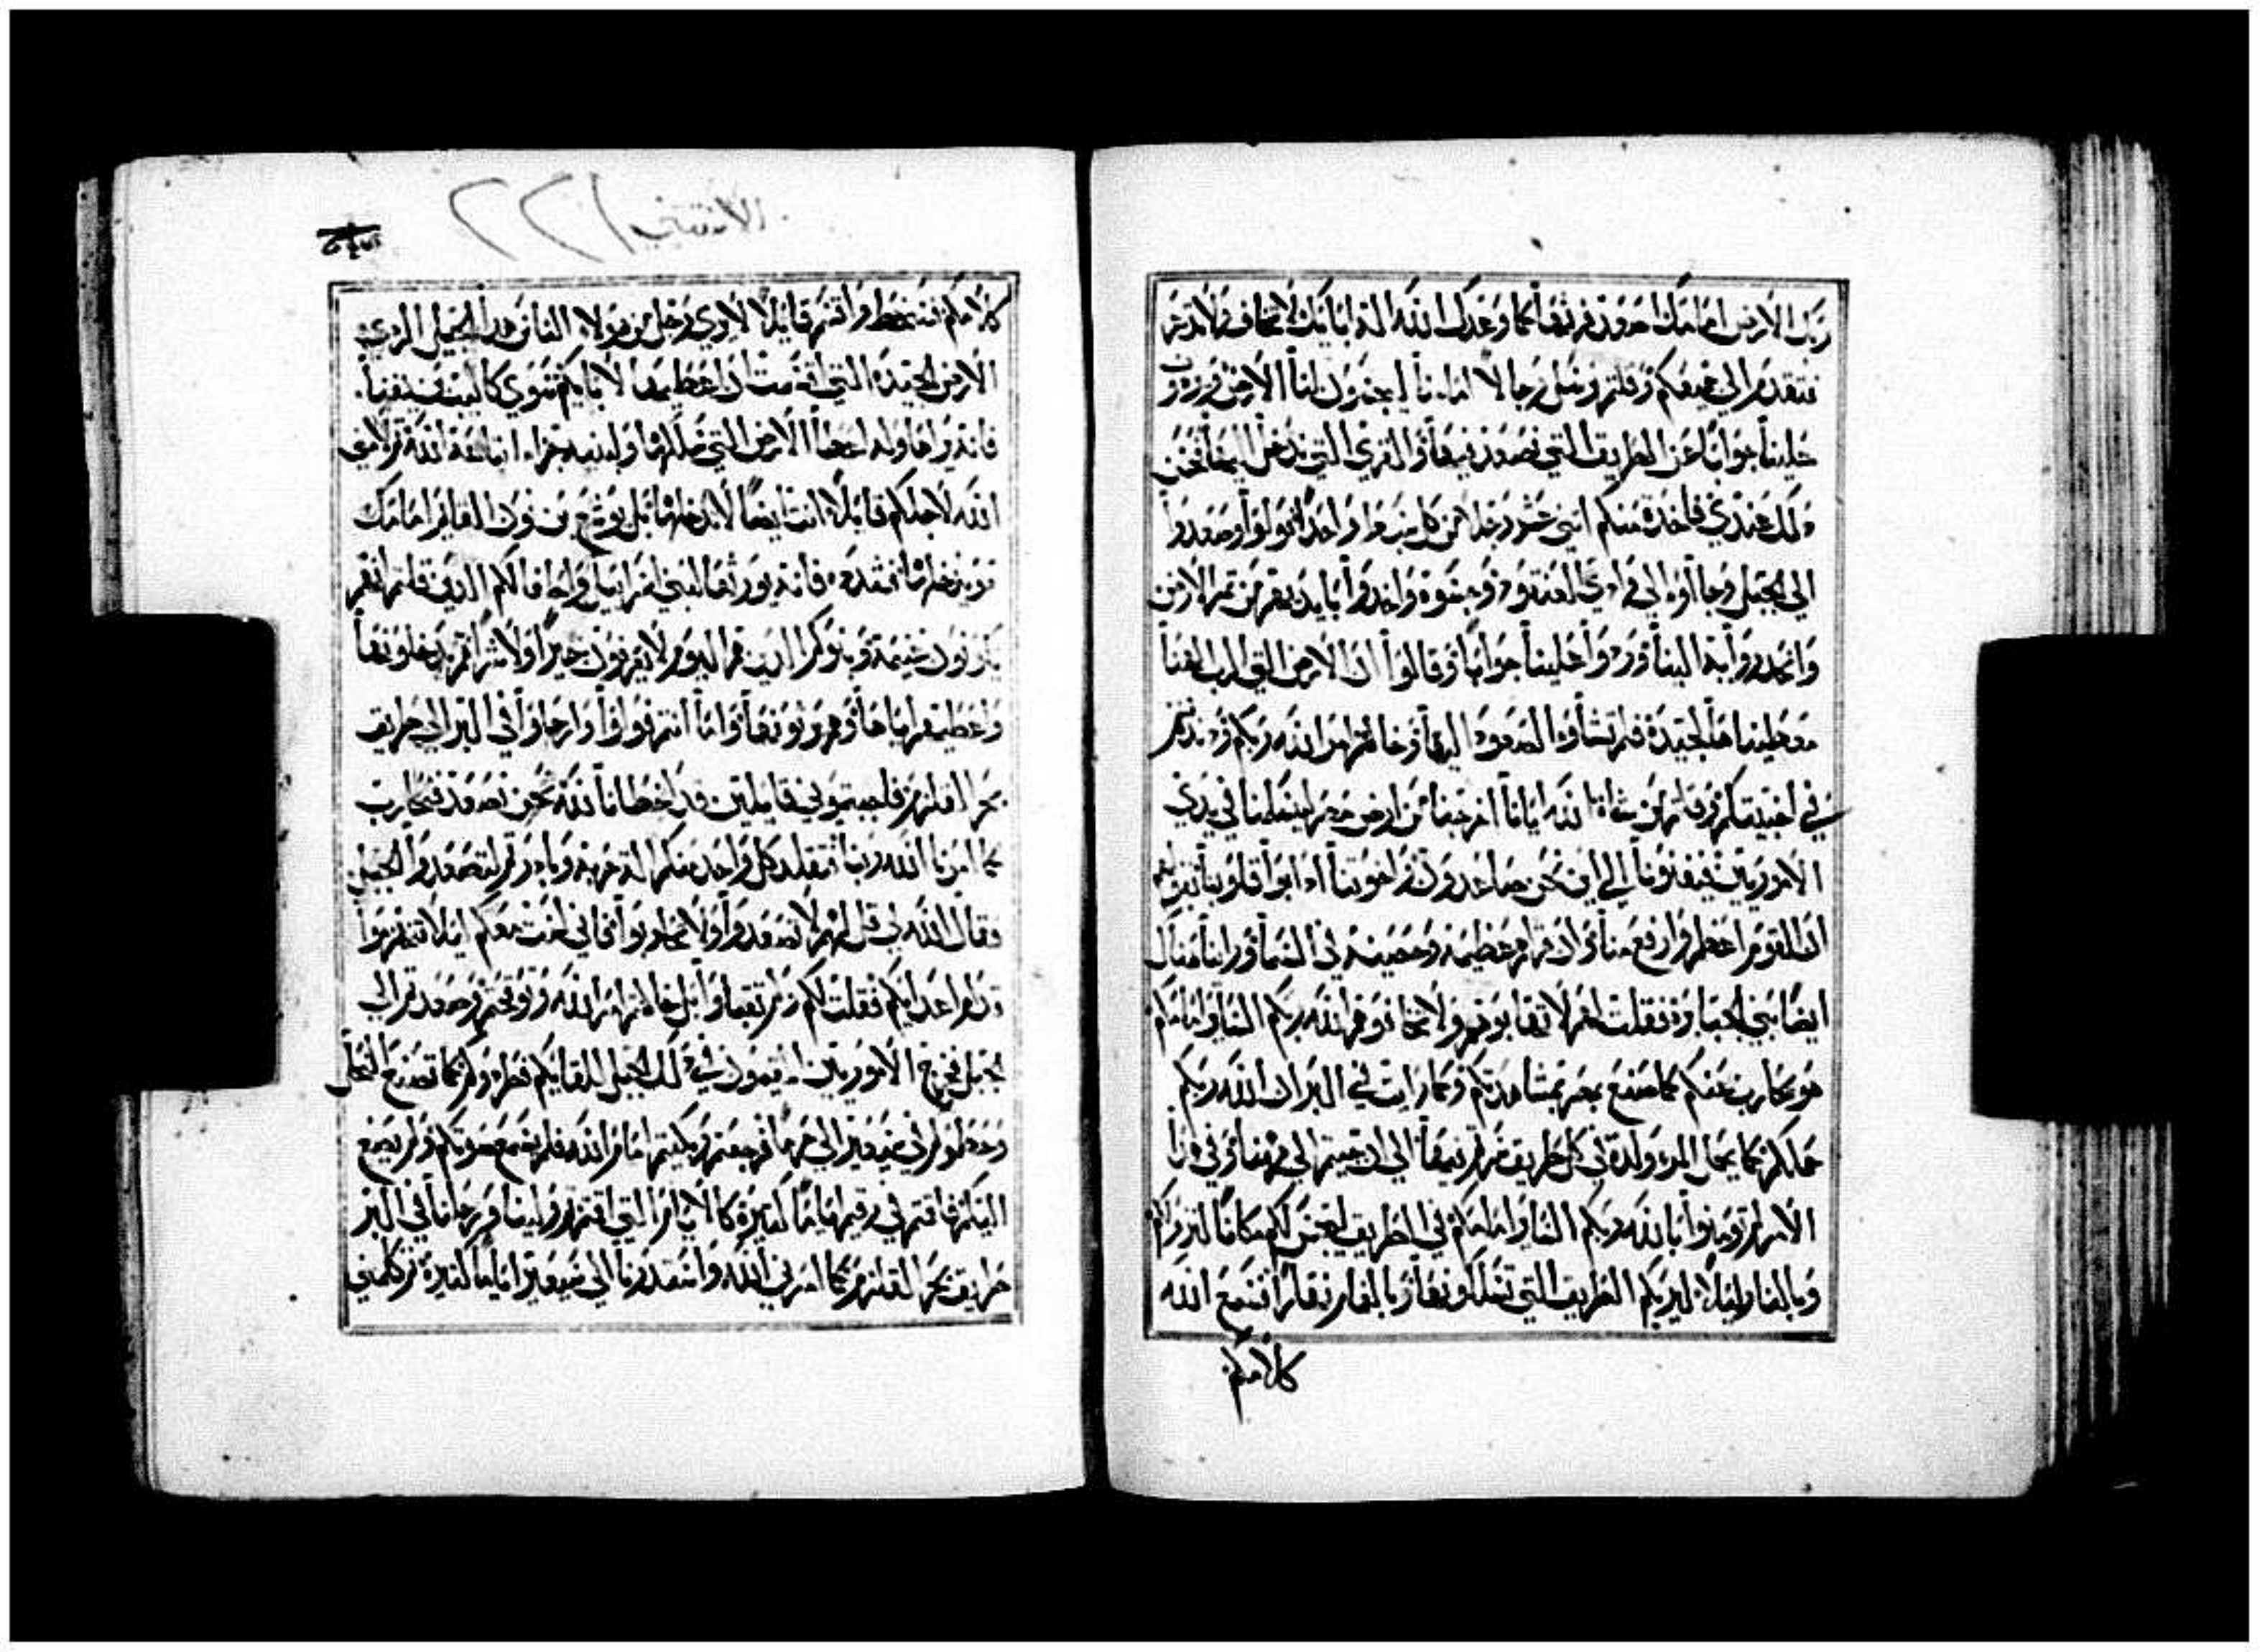 ربك الارض امامك اصعد فرثها كما وعدك الله اله ابايك لا تخاف ولا تدعر
فتقدمتم الي جميعكم وقلتم نرسل رجالا امامنا ليجسون لنا الارض ويردون
علينا جوابا عن الطريق التي نصعد فيها والقري التي ندخل اليها فحسن
ذلك عندي فاخدت منكم اثني عشر رجلا من كل سبط واحدا فولوا وصعدوا
الي الجبل وجاوا الي وادي العنقود وجسوه واخدوا بايديهم من ثمر الارض
وانحدروا به الينا وردوا علينا جوابا وقالوا ان الارض التي الرب الهنا
معطينا هي جيدة فلم تشاوا الصعود اليها وخالفتم امر الله ربكم
في اخبيتكم وقلتم الله ايانا اخرجنا من ارض مصر ليسلمنا في يدي
الاموريين فينفدونا الي اين نحن صاعدون واخوتنا ادابوا قلوبنا
ان القوم اعظم وارفع منا وان قراهم عظيمة وحصينة الي السما وراينا هناك
ايضا بني الجبابرة فقلت لهم لا تهابوهم ولا تخافوهم الله ربكم السايرامامكم
هو يحارب عنكم كما صنع بمصر بمشاهدتكم وكما رايت في البر ان الله ربكم
حملكم كما يحمل المرء ولده في كل طريق سرتم فيها الي ان جيتم الي هاهنا وفي هدا
الامر لم تومنوا بالله ربكم الساير امامكم في الطريق ليحسن لكم مكانا لنزولكم
وبالنار ليلا ليريكم الطريق التي تسلكونها وبالغمام نهارا فسمع الله
كلامكم
الاستثني ٢٢١
كلامكم فسخط واقسم قايلا لا يري رجل من هولاء الناس هدا الجيل الردي
الارض الجيدة التي اقسمت ان اعطيها لابايكم سوي كالب بن يفنا
فانه يراها وله اعطيا الارض التي سلكها ولبنيه جزاء اتباعه الله
الله لاجلكم قايلا انت ايضا لا تدخلها بل يوشع بن نون القايم امامك
هو يدخلها فشدده فانه يورثها لبني اسراييل واطفالكم الدين قلتم انهم
يكونون غنيمة وبنوكم الدين هم اليوم لا يعرفون خيرا ولا شرا هم يدخلونها
واعطيهم اياها وهم يرثونها واما انتم فولوا وارحلوا في البر الي طريق
بحر القلزم فاجبتموني قايلين قد اخطانا لله نحن نصعد فنحارب
كما امرنا الله ربنا فتقلد كل واحد منكم الة حربه وبادرتم لتصعدوا الجبل
فقال الله لي قل لهم لا تصعدوا ولا تحاربوا فاني لست معكم ليلا تنهزموا
قدام اعدايكم فقلت لكم ولم تقبلوا بل خالفتم امر الله وتوقحتم وصعدتم الي
الجبل فخرج الاموريين المقيمون في دلك الجبل للقايكم فطردوكم كما تصنع النحل
وحطموكم في سيعير الي حرما فرجعتم وبكيتم امام الله فلم يسمع صوتكم ولم يصغ
اليكم فاقمتم في رقيم اياما كثيرة كالايام التي اقمتم وولينا ورحلنا في البر
طريق بحر القلزم كما امرني الله واستدرنا الي سيعير اياما كثيرة ثم كلمني